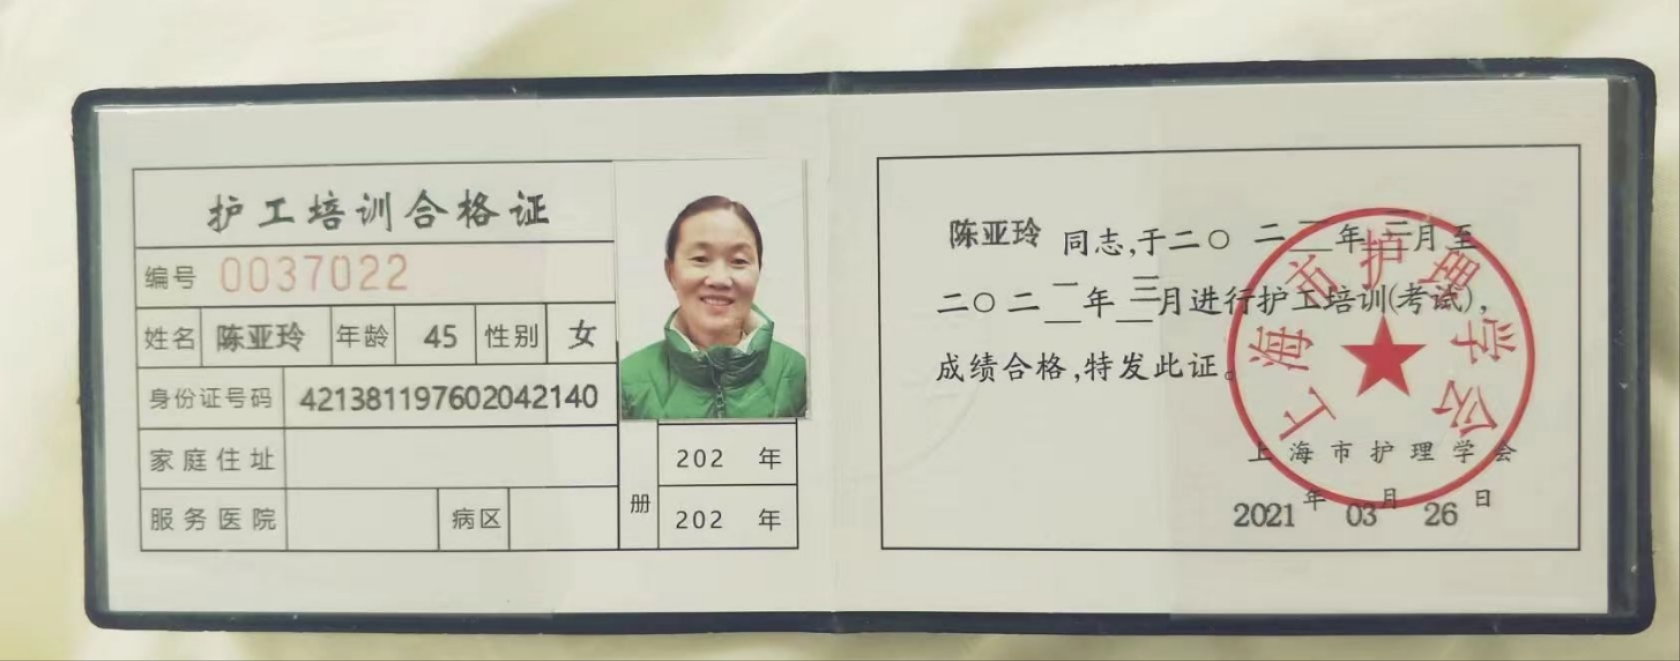 护工培训合格证
编号 0037022
姓名 陈亚玲 年龄 45 性别 女
身份证号码 421381197602042140
家庭住址
服务医院 病区
册
202 年
202 年
陈亚玲 同志,于二〇二二年三月至
二〇二一年三月进行护工培训(考试),
成绩合格,特发此证。
上海市护理学会
上海市护理学会
2021年03月26日